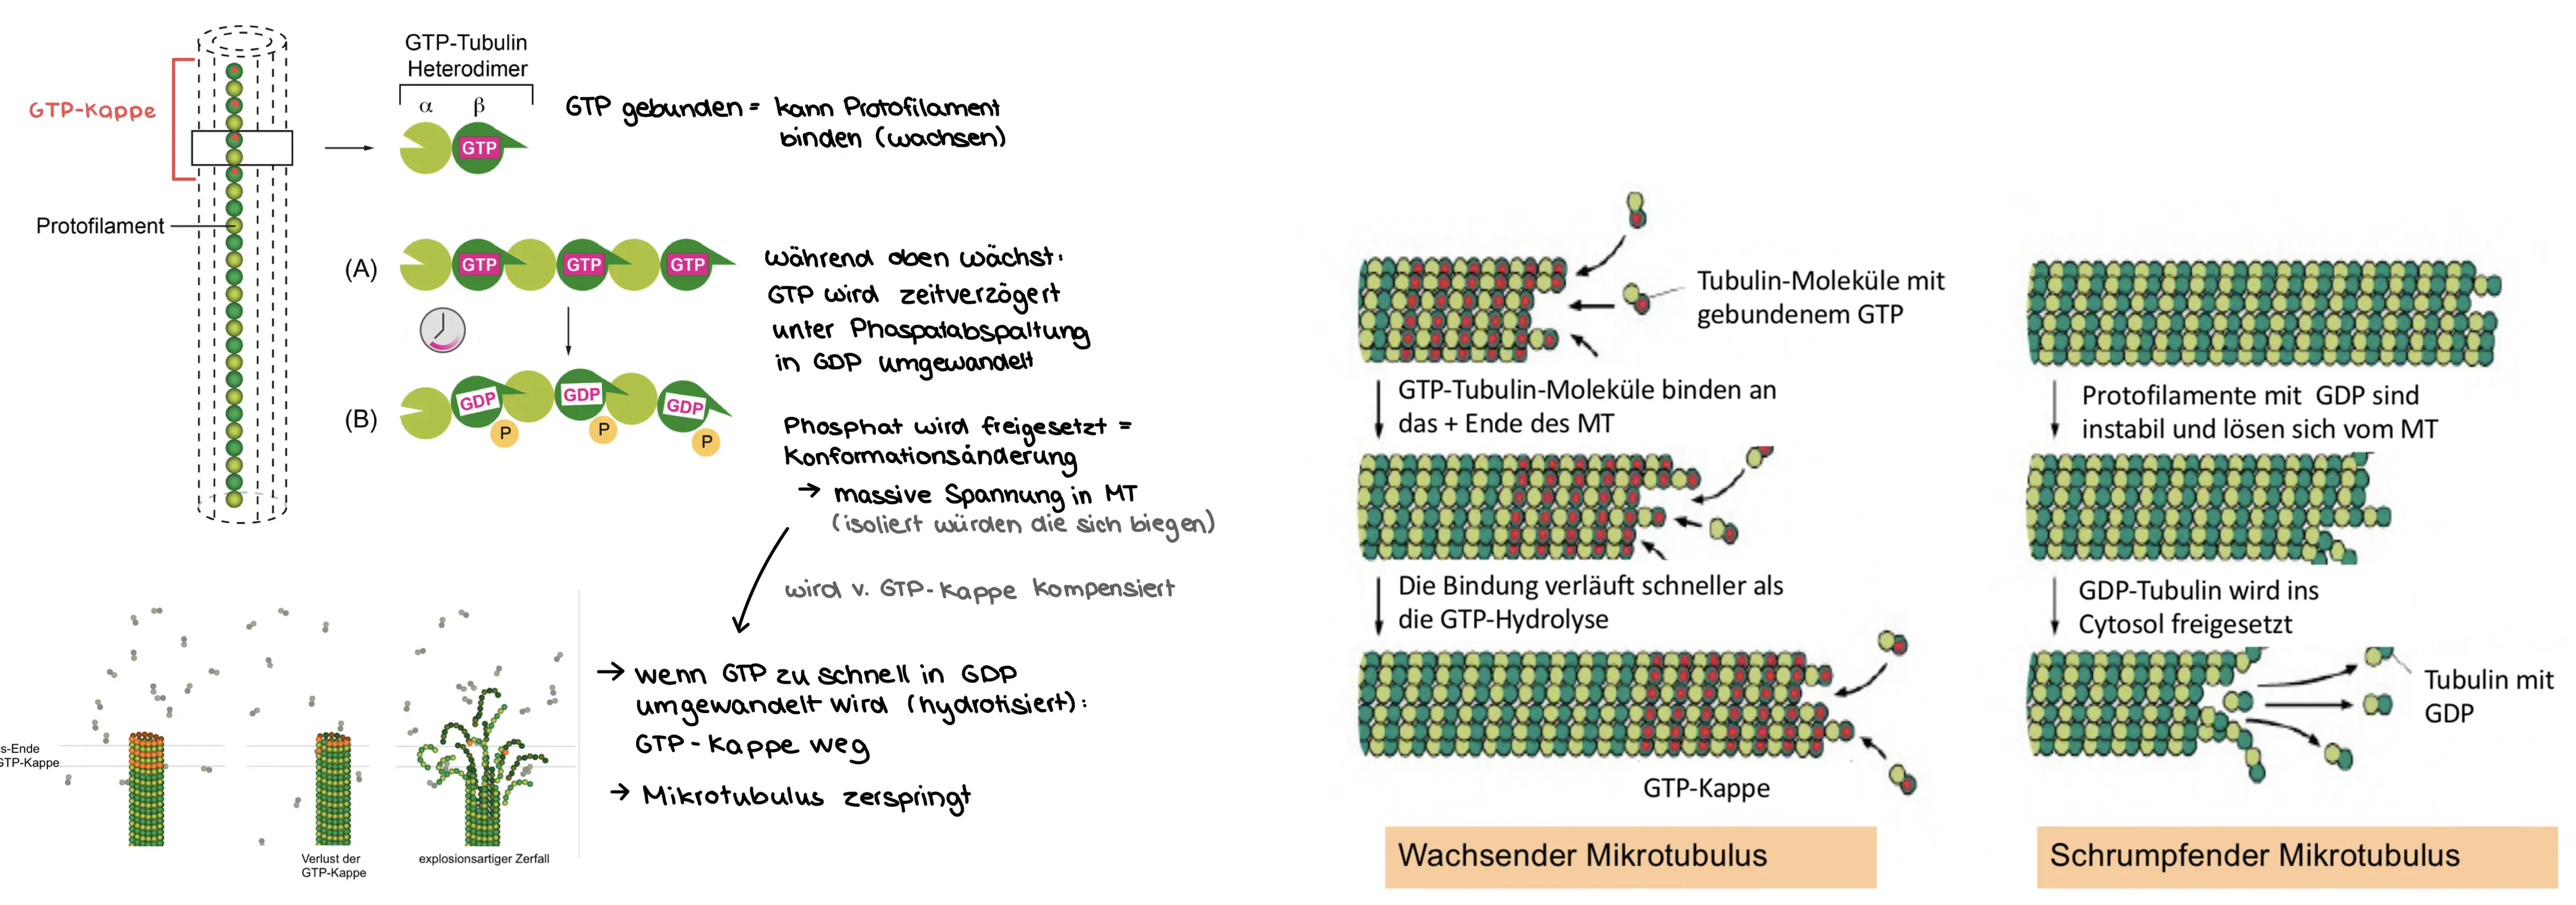 GTP-Kappe
Protofilament
GTP-Tubulin
Heterodimer
α β
GTP
GTP gebunden = kann Protofilament
binden (wachsen)
(A)
GTP GTP GTP
während oben wächst:
GTP wird zeitverzögert
unter Phospatabspaltung
in GDP umgewandelt
(B)
GDP GDP GDP
P P P
Phosphat wird freigesetzt =
Konformationsänderung
→ massive Spannung in MT
(isoliert würden die sich biegen)
wird v. GTP-Kappe kompensiert
→ wenn GTP zu schnell in GDP
umgewandelt wird (hydrotisiert):
GTP-Kappe weg
→ Mikrotubulus zerspringt
s-Ende
GTP-Kappe
Verlust der
GTP-Kappe
explosionsartiger Zerfall
Tubulin-Moleküle mit
gebundenem GTP
GTP-Tubulin-Moleküle binden an
das + Ende des MT
Die Bindung verläuft schneller als
die GTP-Hydrolyse
GTP-Kappe
Wachsender Mikrotubulus
Protofilamente mit GDP sind
instabil und lösen sich vom MT
GDP-Tubulin wird ins
Cytosol freigesetzt
Tubulin mit
GDP
Schrumpfender Mikrotubulus